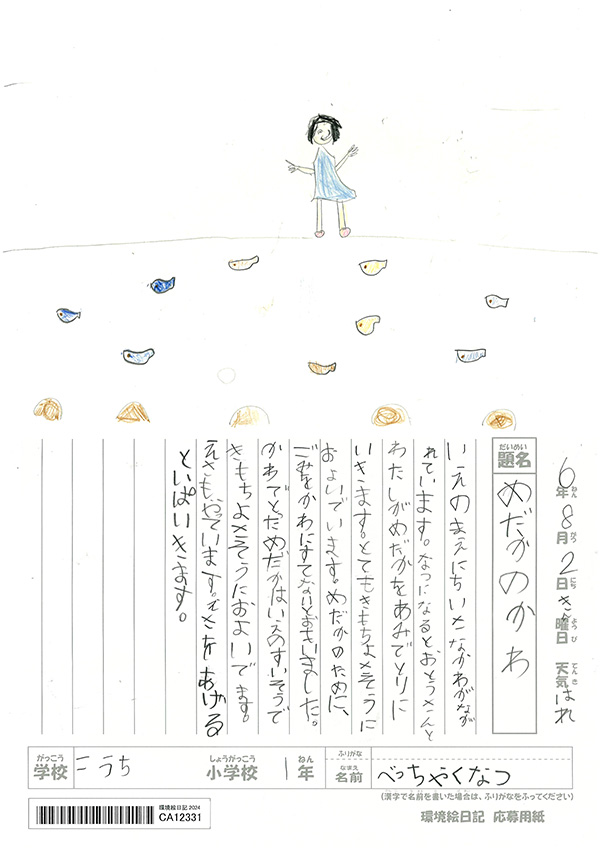 6年8月2日きん曜日 天気はれ
ねん がつ にち ようび てんき
だいめい
題名
めだかのかわ
いえのまえにちいさなかわがなが
れています。なつになるとおとうさんと
わたしがめだかをあみでとりに
いきます。とてもきもちよさそうに
およいでいます。めだかのために、
ごみをかわにすてないとおもいました。
かわでとっためだかはいえのすいそうで
きもちよさそうにおよいでます。
えさもやっています。えさをあげる
といぱいきます。
がっこう
学校
こうち
しょうがっこう
小学校
1
ねん
年
ふりがな
なまえ
名前
べっちゃくなつ
(漢字で名前を書いた場合は、ふりがなをふってください)
環境絵日記 2024
CA12331
環境絵日記 応募用紙